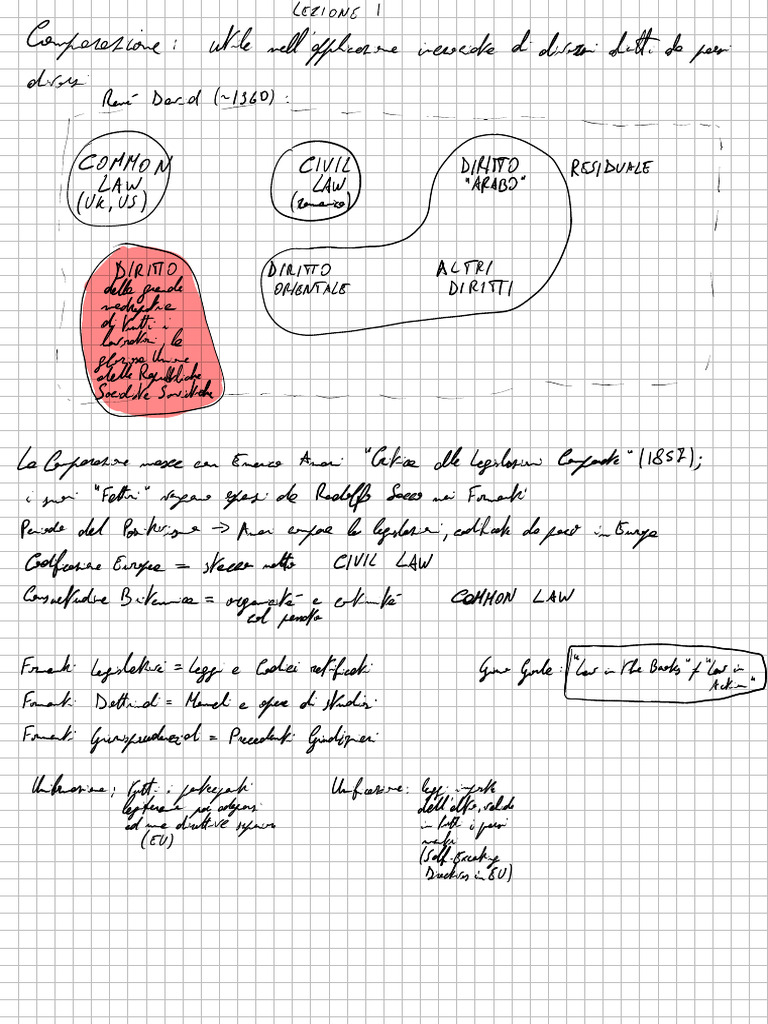 LEZIONE 1
Comparazione: utile nell'applicazione incrociata di divers diritti da paesi
diversi
René David (~1960):
COMMON
LAW
(UK, US)
CIVIL
LAW
(romanico)
DIRITTO
"ARABO"
RESIDUALE
DIRITTO
ORIENTALE
ALTRI
DIRITTI
DIRITTO
della grande
madrepatria
di tutti i
lavoratori, la
gloriosa Unione
delle Repubbliche
Socialiste Sovietiche
La Comparazione nasce con Emerico Amari "Critica alle Legislazioni Comparate" (1857);
i suoi "Fattori" vengono espansi da Rodolfo Sacco nei Formanti
Periodo del Positivismo -> Amari compara le legislazioni, codificate da poco in Europa
Codificazione Europea = stacco netto CIVIL LAW
Consuetudine Britannica = organicità e continuità COMMON LAW
col passato
Formanti Legislativi = Leggi e Codici ratificati
Gino Gorla: "Law in the Books" ≠ "Law in
Action"
Formanti Dottrinali = Manuali e opere di studiosi
Formanti Giurisprudenziali = Precedenti Giudiziari
Uniformazione: Tutti i partecipanti
legiferano per adeguarsi
ad una direttiva superiore
(EU)
Unificazione: leggi imposte
dall'alto, valide
in tutti i paesi
membri
(Self-Executing
Directives in EU)